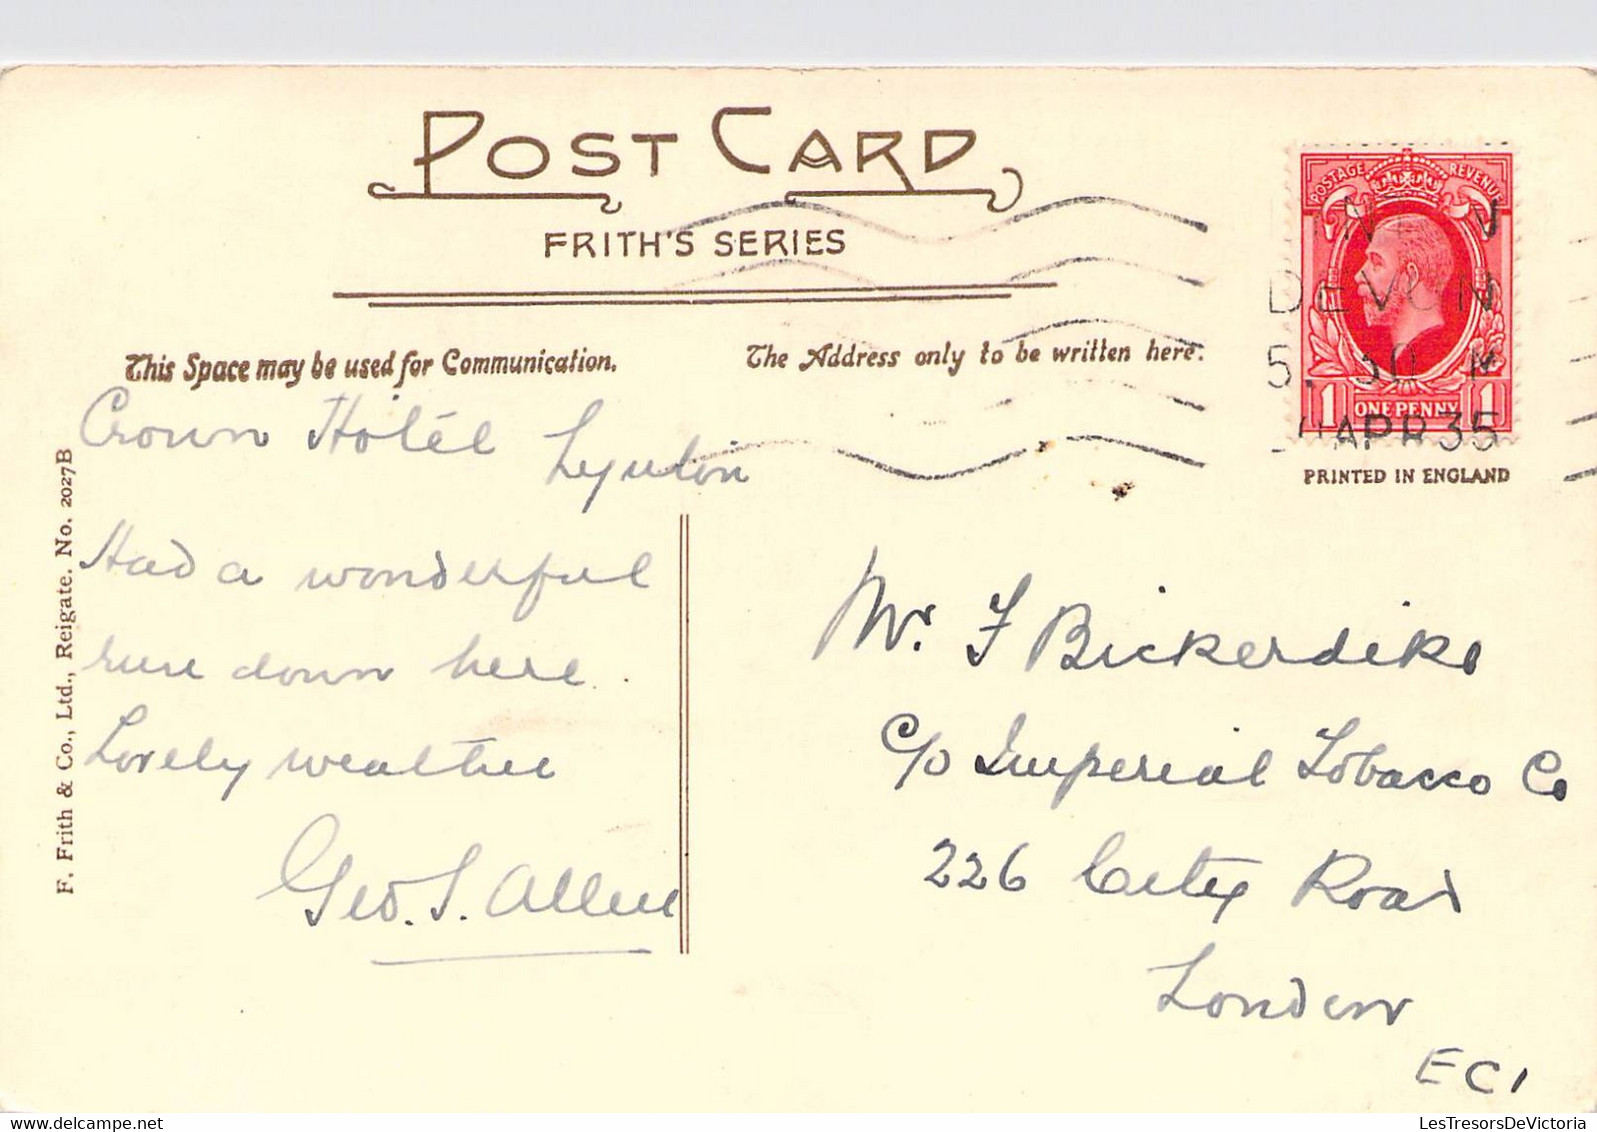 POST CARD
FRITH'S SERIES
This Space may be used for Communication.
The Address only to be written here.
POSTAGE REVENUE
DEVON
5. 30 M
APR 35
1 ONE PENNY 1
PRINTED IN ENGLAND
F. Frith & Co., Ltd., Reigate. No. 2027B
Crown Hotél Lynton
Had a wonderful
run down here.
Lovely weather
Geo. S. Allen
Mr. F Bickerdike
c/o Imperial Tobacco Co
226 City Road
London
EC1
LesTresorsDeVictoria